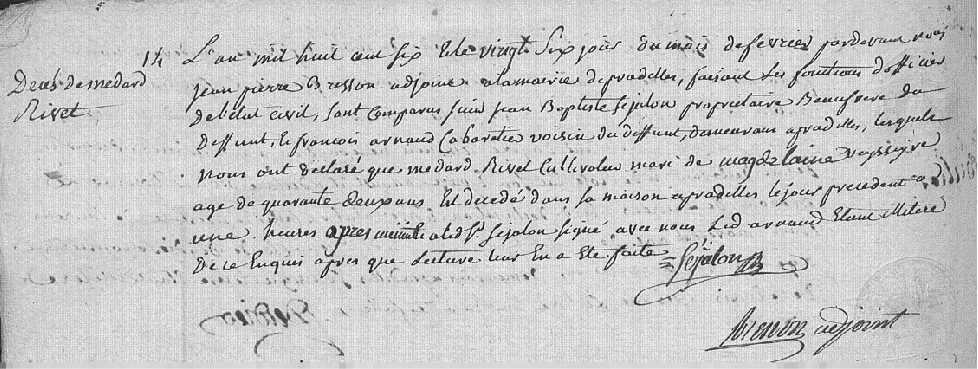 14
Deces de medard
Rivet
L'an mil huit cent six et le vingt six jour du mois de fevrier pardevant nous
jean pierre adjoint a la mairie de pradelles, faisant les fonctions d'officier
de l'etat civil, sont comparus sieur jean Baptiste sejalon proprietaire Beaufrere du
deffunt, et francois arnaud Cabaretier voisin du deffunt, demeurans a pradelles, lesquels
nous ont declaré que medard Rivet Cultivateur mari de magdelaine Veysseyre
age de quarante deux ans Est decedé dans sa maison a pradelles le jour precedent a
une heures apres le d. Sr. Sejalon signé avec nous Led arnaud Etant illiteré
De ce Enquis apres que Lecture leur En a Eté faite
Sejalon
adjoint